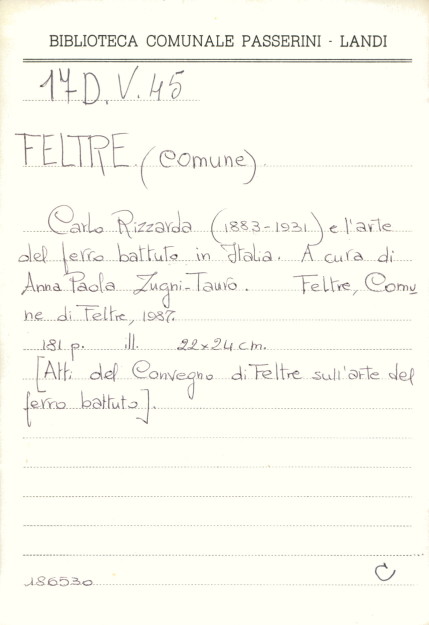 BIBLIOTECA COMUNALE PASSERINI - LANDI
17D.V.45
FELTRE (Comune)
Carlo Rizzarda (1883-1931) e l'arte
del ferro battuto in Italia. A cura di
Anna Paola Zugni-Tauro. Feltre, Comu
ne di Feltre, 1987.
181 p. ill. 22x24 cm.
[Atti del Convegno di Feltre sull'arte del
ferro battuto].
186530 C